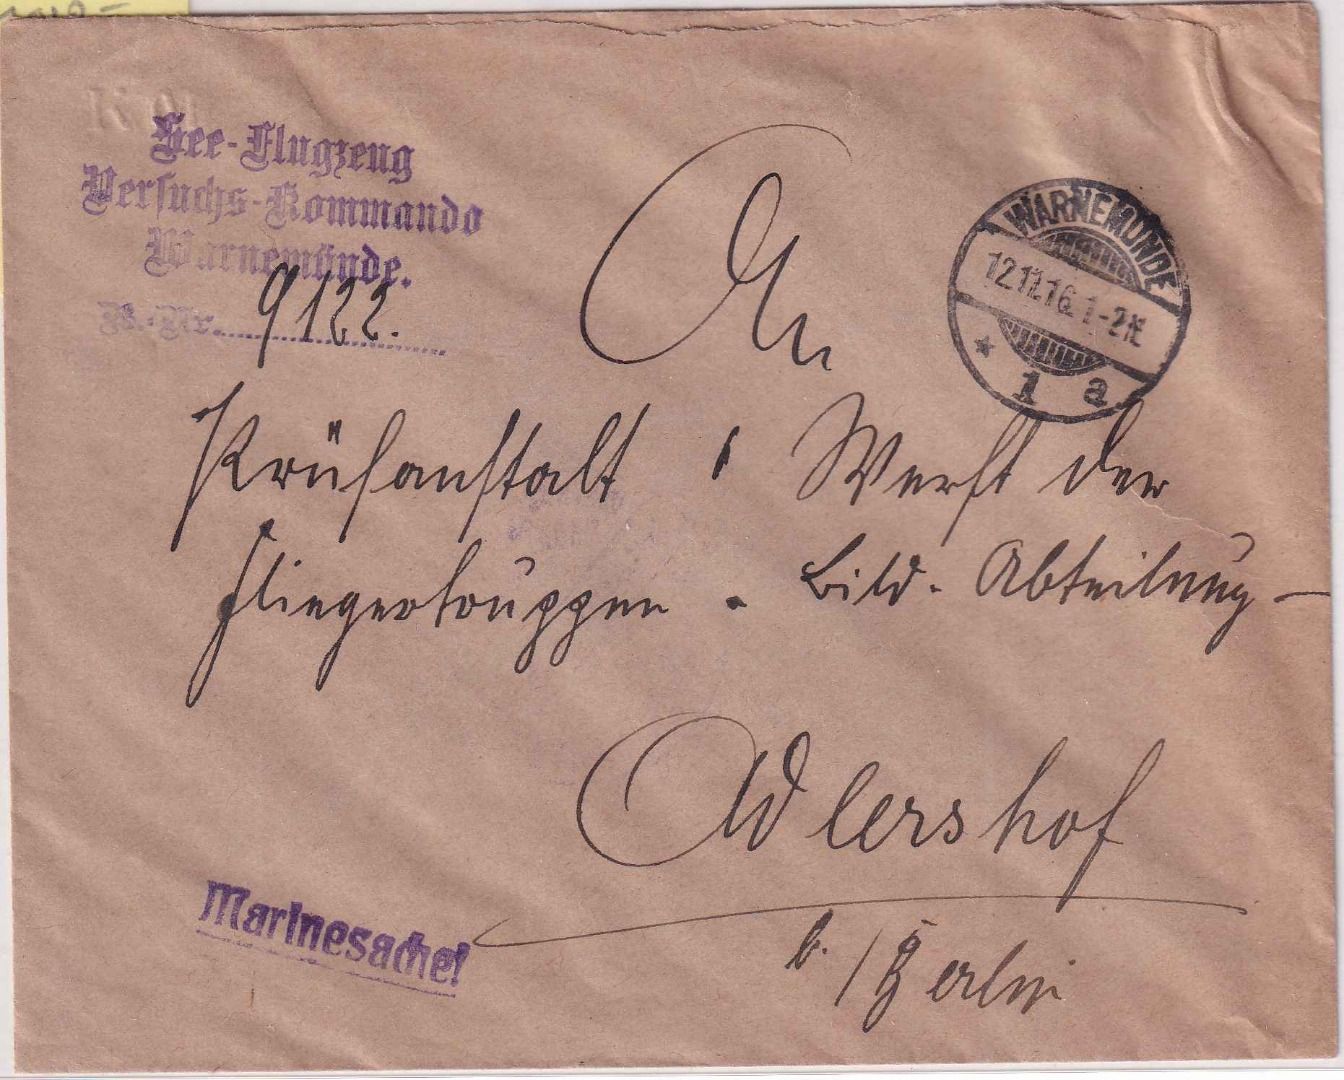 See-Flugzeug
Versuchs-Kommando
Warnemünde.
B.-Nr. 9122.
WARNEMÜNDE
12.12.16. 1-2N.
* 1 a
An
Prüfanstalt u. Werft der
Fliegertruppen. Bild-Abteilung-
Adlershof
b./Berlin
Marinesache!